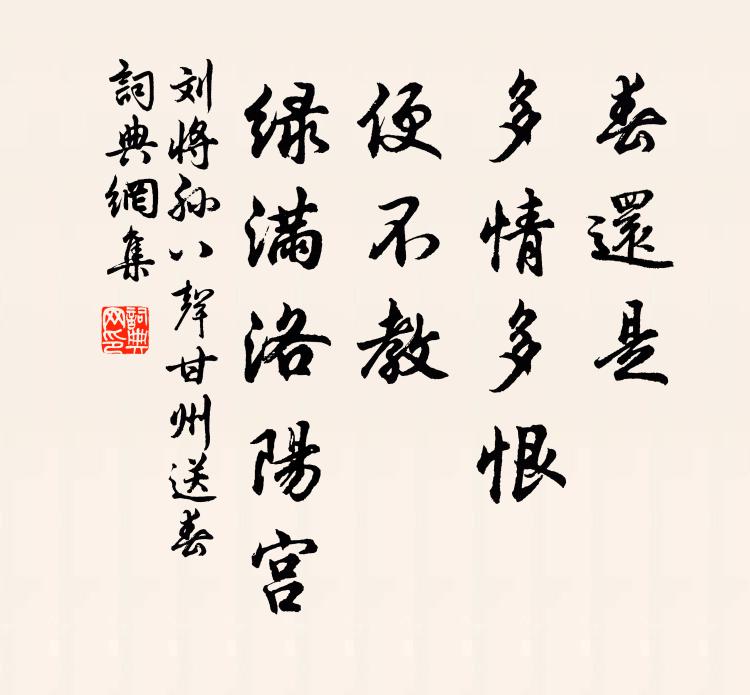 春還是
多情多恨
便不教
绿满洛陽宫
刘将孙八聲甘州送春
詞典網集
詞典
网印